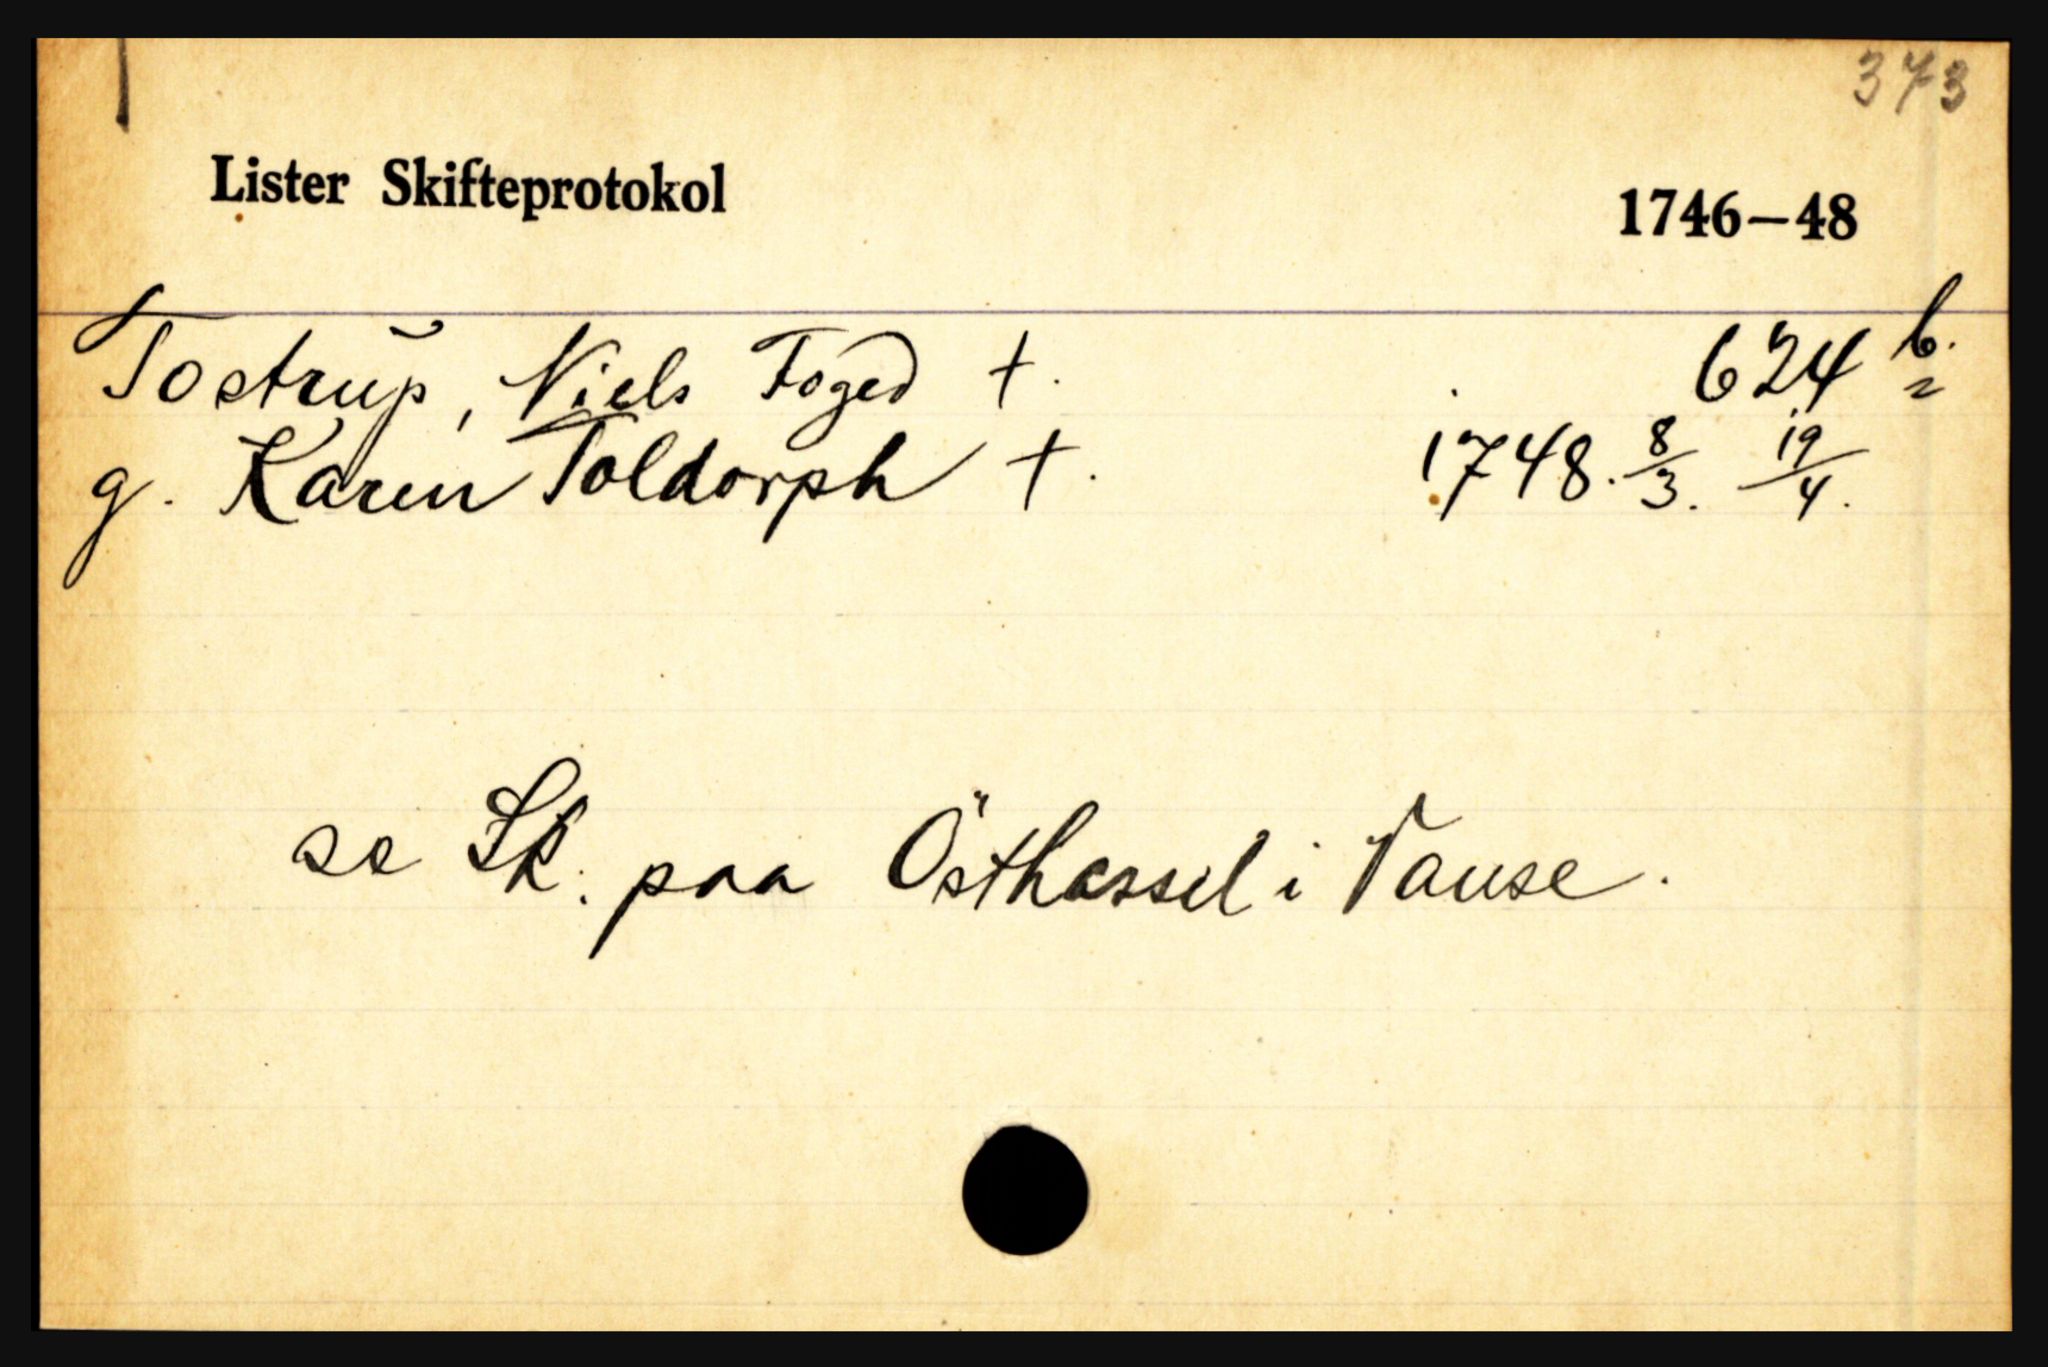 373
Lister Skifteprotokol 1746–48
Tostrup, Niels Foged †. 624 b.
g. Karen Toldorph †. 1748. 8/3. 19/4.
se Sk. paa Östhassel i Vanse.